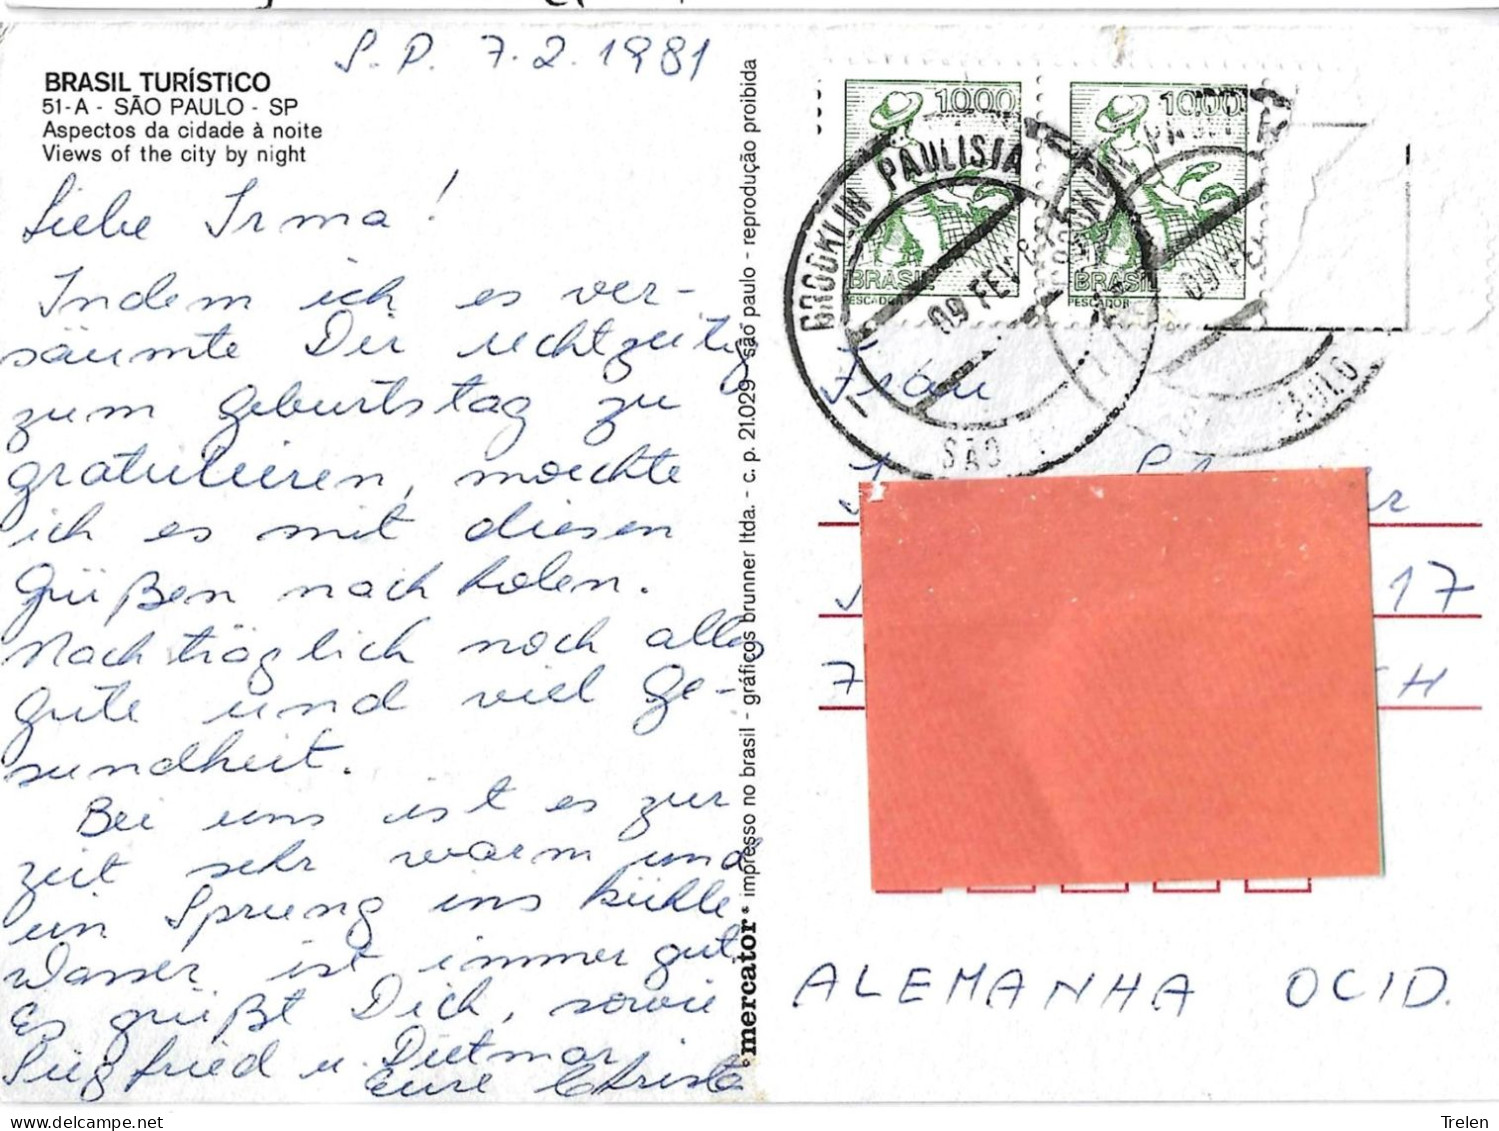 S.P. 7.2.1981
BRASIL TURÍSTICO
51-A - SÃO PAULO - SP
Aspectos da cidade à noite
Views of the city by night
Liebe Irma!
Indem ich es ver-
säumte Dir rechtzeitig
zum Geburtstag zu
gratulieren, möchte
ich es mit diesen
Grüßen nachholen.
Nachträglich noch alles
gute und viel Ge-
sundheit.
Bei uns ist es zur
zeit sehr warm und
ein Sprung ins kühle
Wasser ist immer gut.
Es grüßt Dich, sowie
Siegfried u. Dietmar,
Eure Christa
mercator impresso no brasil - gráficos brunner ltda. - c. p. 21.029 - são paulo - reprodução proibida
10,00
BRASIL
PESCADOR
10,00
BRASIL
PESCADOR
BROOKLIN PAULISTA
09 FEV
SÃO
BROOKLIN PAULISTA
09 FEV
PAULO
Frau
17
7
CH
ALEMANHA OCID.
Trelen